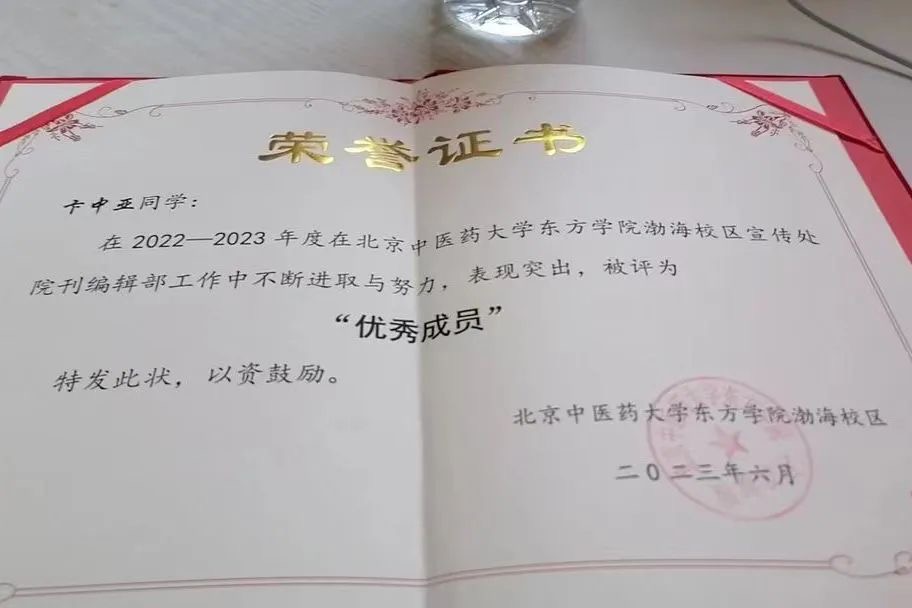 荣誉证书
卞中亚同学：
在2022—2023年度在北京中医药大学东方学院渤海校区宣传处
院刊编辑部工作中不断进取与努力，表现突出，被评为
“优秀成员”
特发此状，以资鼓励。
北京中医药大学东方学院渤海校区
二〇二三年六月